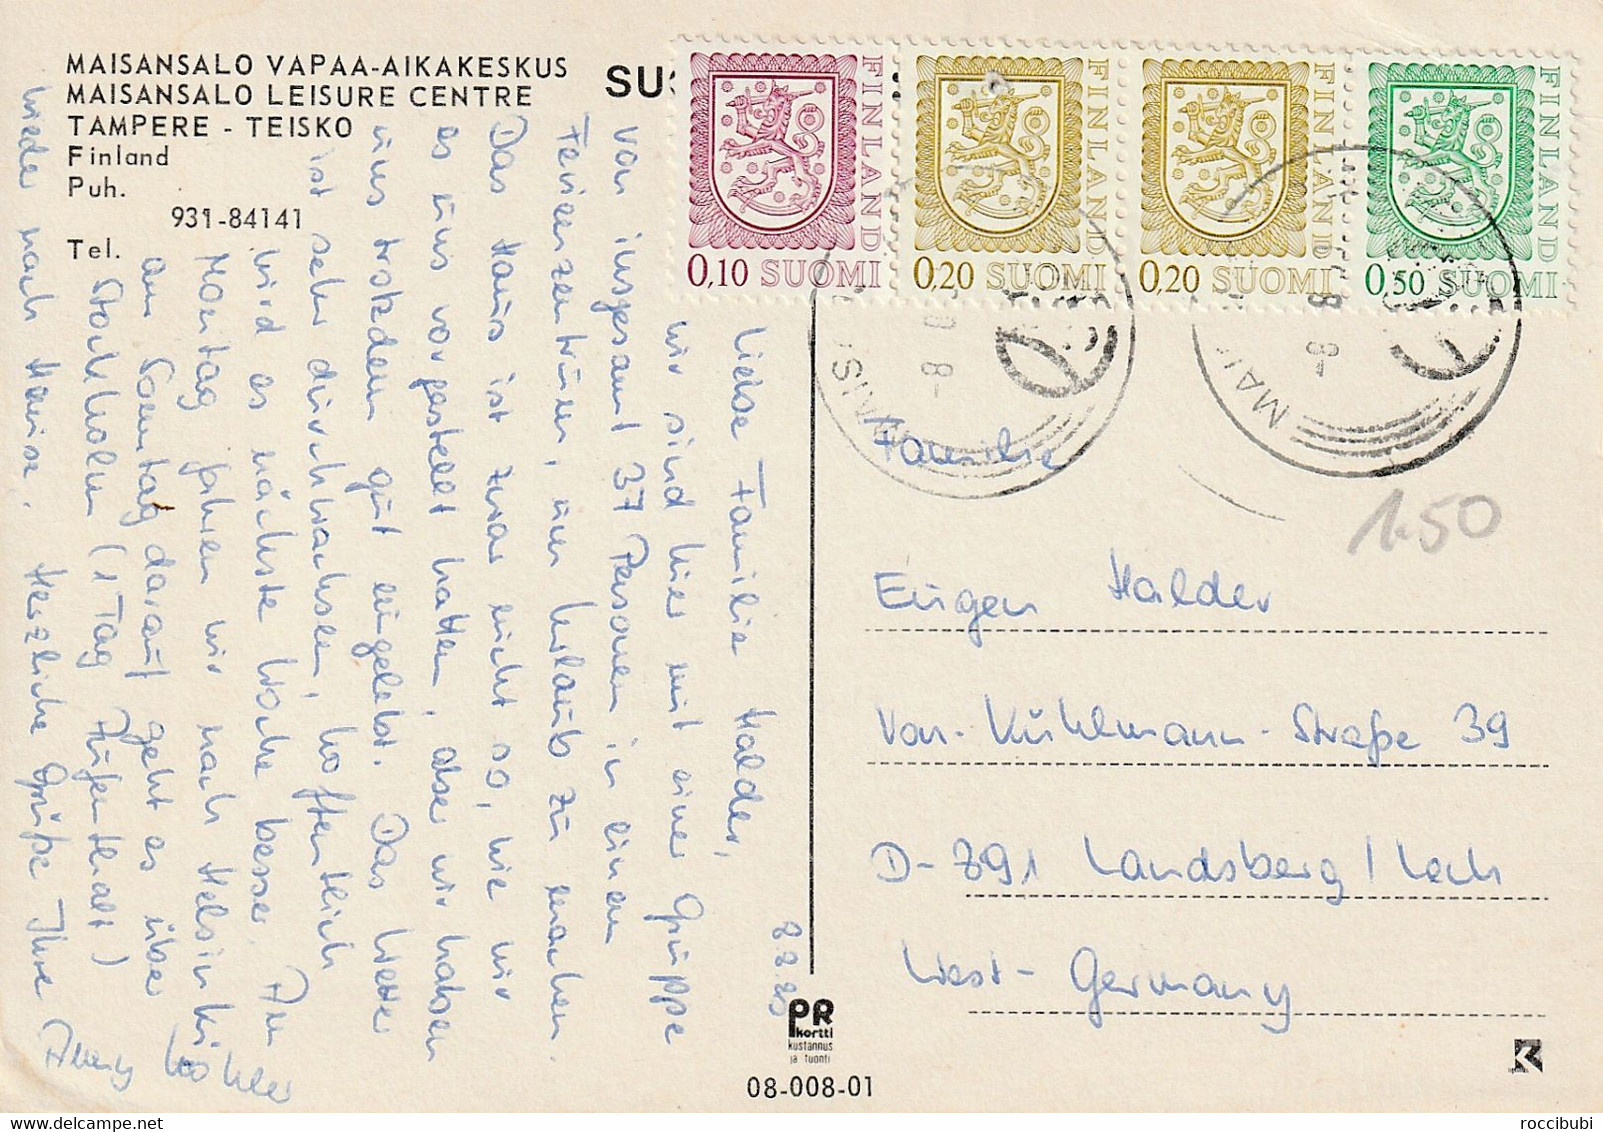 MAISANSALO VAPAA-AIKAKESKUS
MAISANSALO LEISURE CENTRE
TAMPERE - TEISKO
Finland
Puh.
931-84141
Tel.
SU
FINLAND
0,10 SUOMI
FINLAND
0,20 SUOMI
FINLAND
0,20 SUOMI
FINLAND
0,50 SUOMI
8.8.80
Liebe Familie Halder,
wir sind hier mit einer Gruppe
von insgesamt 37 Personen in einem
Ferienzentrum, um Urlaub zu machen.
Das Haus ist zwar nicht so, wie wir
es uns vorgestellt hatten, aber wir haben
uns trotzdem gut eingelebt. Das Wetter
ist sehr durchwachsen, hoffentlich
wird es nächste Woche besser. Am
Montag fahren wir nach Helsinki
am Sonntag darauf geht es über
Stockholm (1 Tag Aufenthalt)
wieder nach Hause. Herzliche Grüße Ihre
Familie
Eugen Halder
Von-Kühlmann-Straße 39
D-891 Landsberg/Lech
West-Germany
1.50
PR
kortti
kustannus
ja tuonti
08-008-01
K
roccibubi